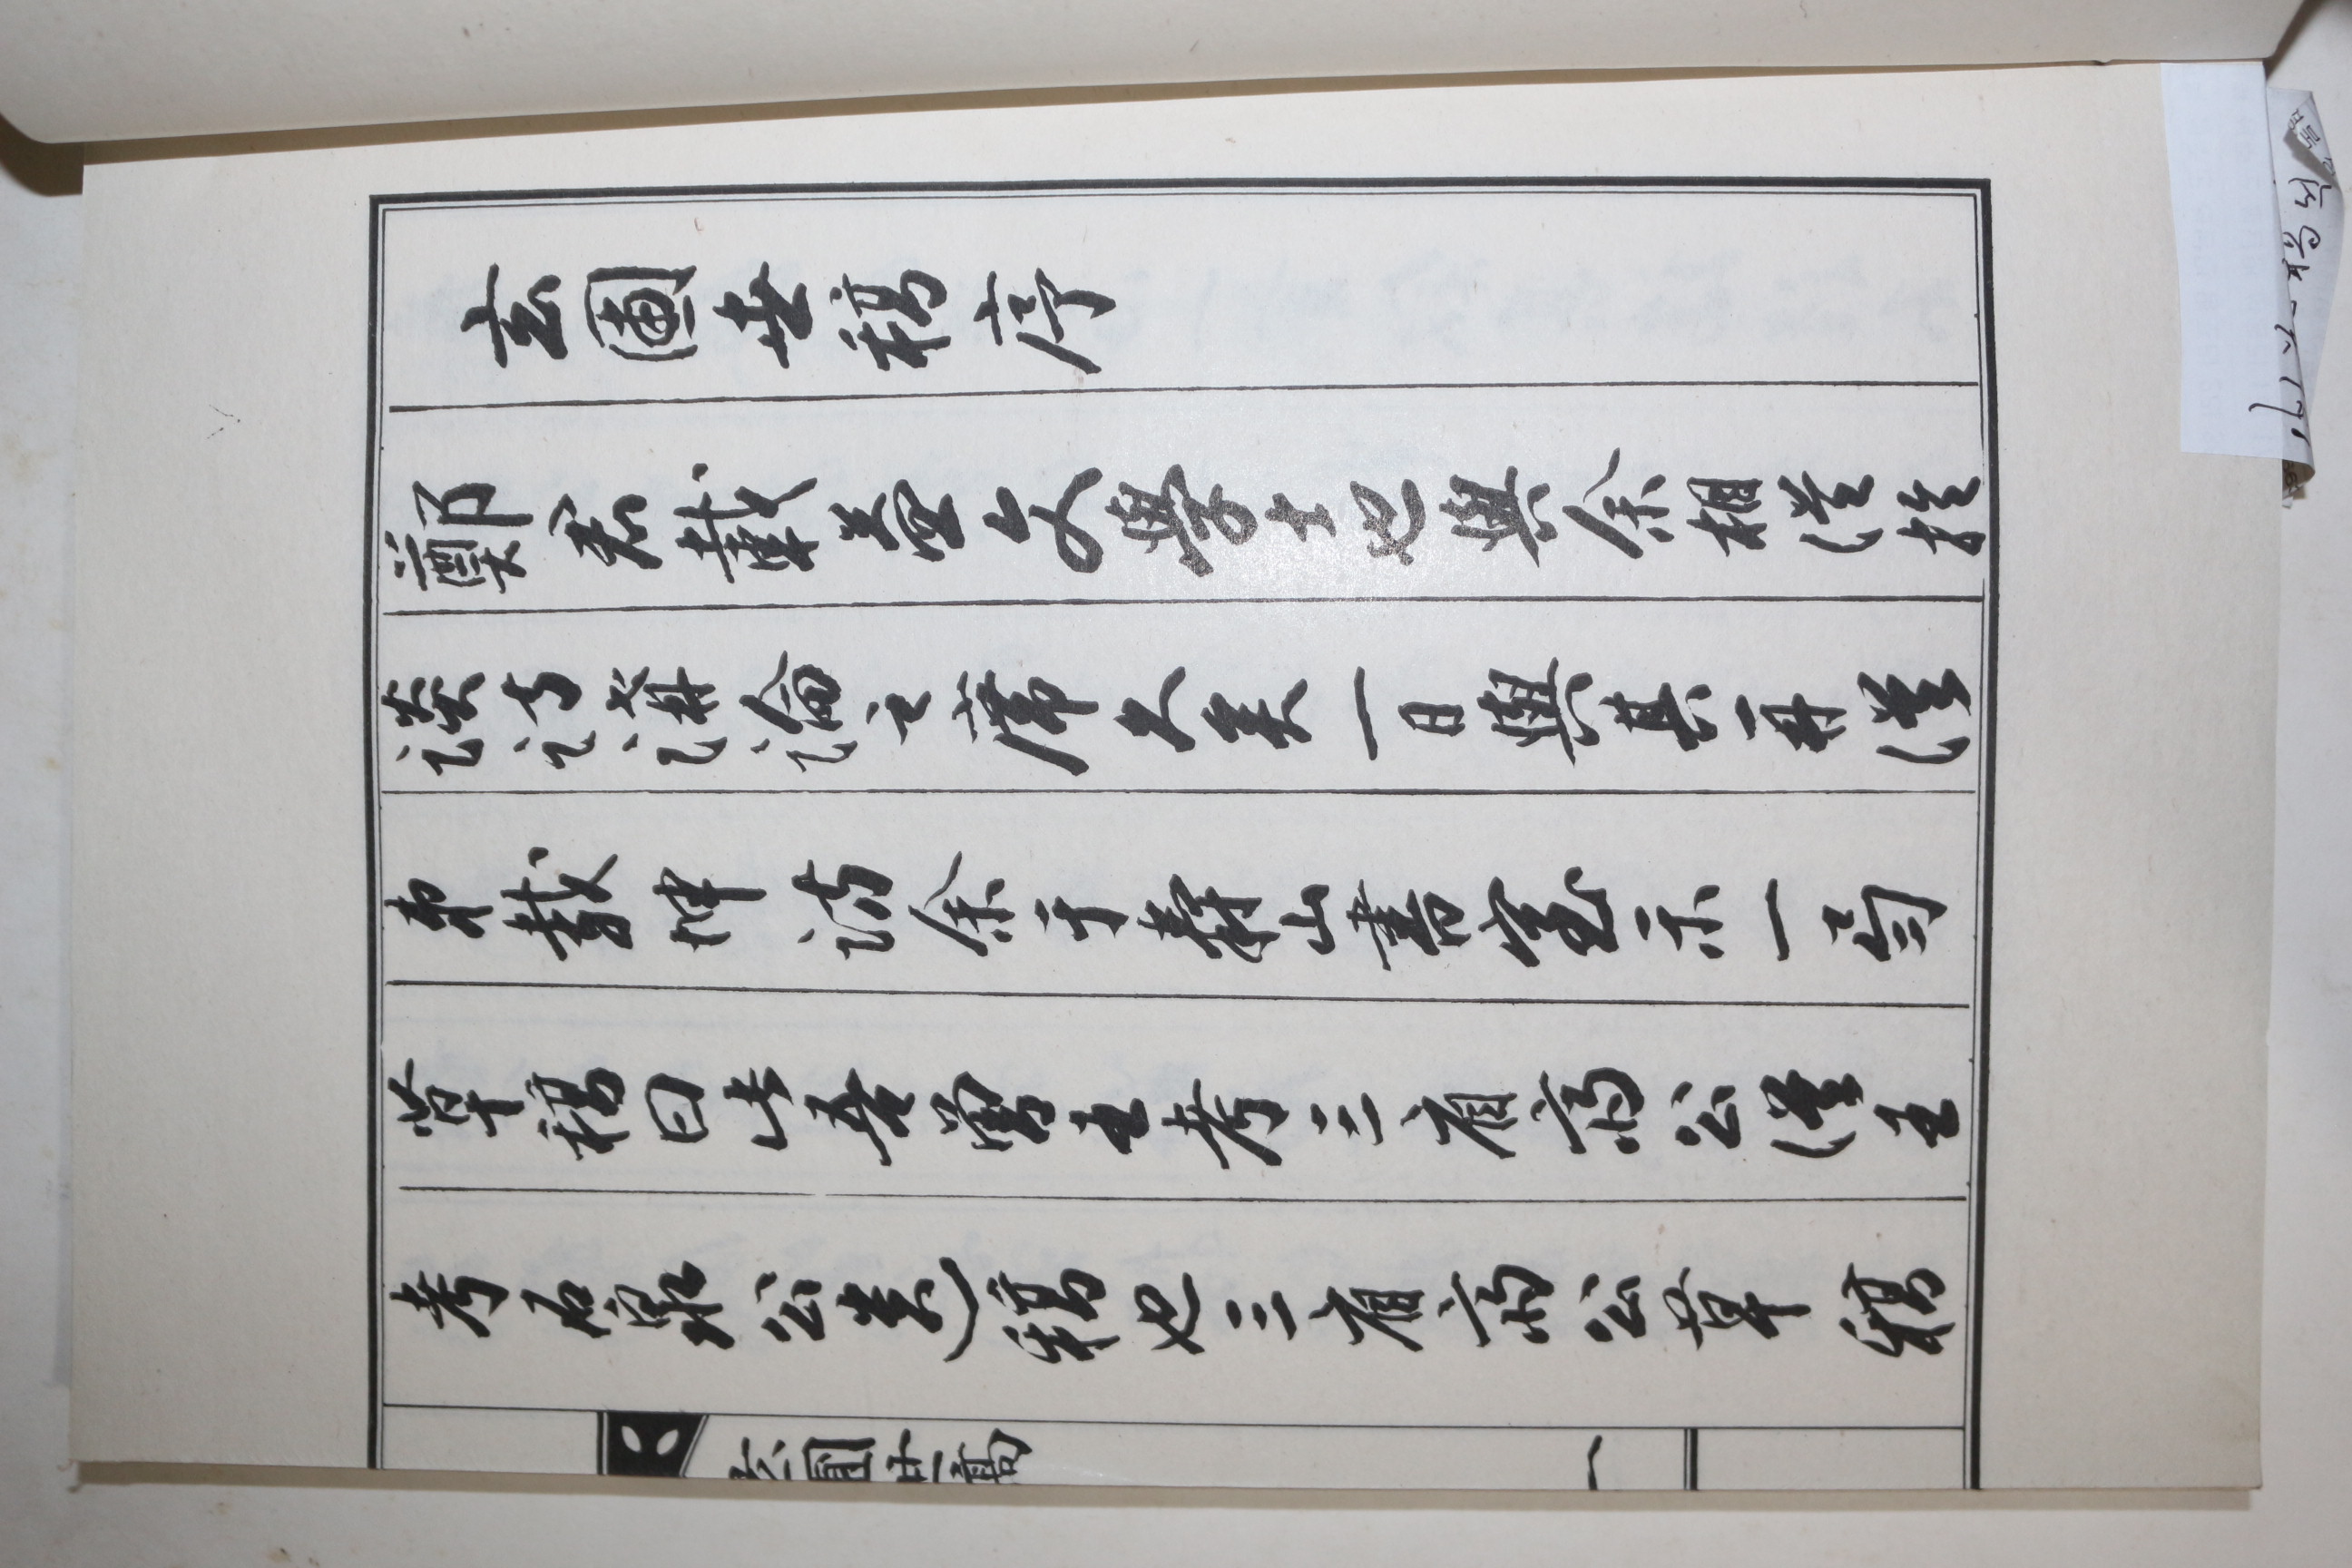 玄圃世稿序
鄭君載益文學士也與余相從於
談詩講論之席久矣一日與其再從
弟載坤訪余于壽山書室示一局
草稿曰此吾曾王考三省齋公從王
考石泉公遺稿也三省齋公草稿
玄圃世稿
一